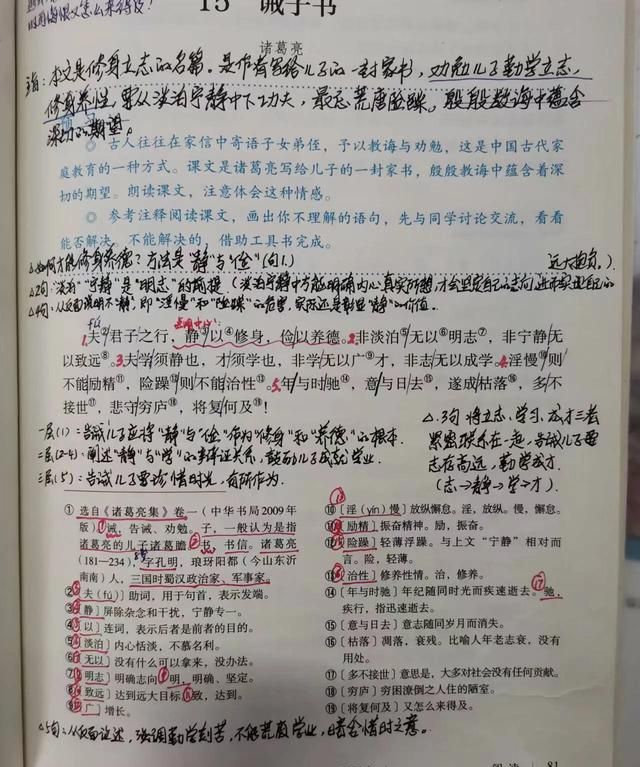 以用悔恨又怎么来得及!
15 诫子书
诸葛亮
主旨:本文是修身立志的名篇。是作者写给儿子的一封家书,劝勉儿子勤学立志,
修身养性,要从淡泊宁静中下功夫,最忌荒唐险躁。殷殷教诲中蕴含
深切的期望。
◎ 古人往往在家信中寄语子女弟侄,予以教诲与劝勉,这是中国古代家
庭教育的一种方式。课文是诸葛亮写给儿子的一封家书,殷殷教诲中蕴含着深
切的期望。朗读课文,注意体会这种情感。
◎ 参考注释阅读课文,画出你不理解的语句,先与同学讨论交流,看看
能否解决。不能解决的,借助工具书完成。
△如何才能修身养德?方法是“静”与“俭”(句1.)
远大抱负。)
△2句:“淡泊”“宁静”是“明志”的前提(淡泊宁静中方能明确内心真实所想,才会坚定自己的志向,进而实现自己的
△4句:从反面说明不“静”,即“淫慢”和“险躁”的危害,实际还是彰显“静”的价值。
点明中心
1.夫②君子之行,静③以④修身,俭以养德。2.非淡泊⑤无以⑥明志⑦,非宁静无
以致远⑧。3.夫学须静也,才须学也,非学无以广⑨才,非志无以成学。4.淫慢⑩则
不能励精⑪,险躁⑫则不能治性⑬。5.年与时驰⑭,意与日去⑮,遂成枯落⑯,多不
接世⑰,悲守穷庐⑱,将复何及⑲!
一层(1):告诫儿子应将“静”与“俭”作为“修身”和“养德”的根本.
二层(2-4):阐述“静”与“学”的事理关系,鼓励儿子成就学业.
三层(5):告诫儿子要珍惜时光,有所作为.
△.3句 将立志、学习、成才三者
紧密联系在一起,告诫儿子要
志存高远,勤学成才.
(志→静→学→才).
① 选自《诸葛亮集》卷一(中华书局2009年
版)。诫,告诫、劝勉。子,一般认为是指
诸葛亮的儿子诸葛瞻。书,书信。诸葛亮
(181—234),字孔明,琅琊阳都(今山东沂
南南)人,三国时蜀汉政治家、军事家。
②〔夫(fú)〕助词,用于句首,表示发端。
③〔静〕屏除杂念和干扰,宁静专一。
④〔以〕连词,表示后者是前者的目的。
⑤〔淡泊〕内心恬淡,不慕名利。
⑥〔无以〕没有什么可以拿来,没办法。
⑦〔明志〕明确志向。明,明确、坚定。
⑧〔致远〕达到远大目标。致,达到。
⑨〔广〕增长。
⑩〔淫(yín)慢〕放纵懈怠。淫,放纵。慢,懈怠。
⑪〔励精〕振奋精神。励,振奋。
⑫〔险躁〕轻薄浮躁。与上文“宁静”相对而
言。险,轻薄。
⑬〔治性〕修养性情。治,修养。
⑭〔年与时驰〕年纪随同时光而疾速逝去。驰,
疾行,指迅速逝去。
⑮〔意与日去〕意志随同岁月而消失。
⑯〔枯落〕凋落,衰残。比喻人年老志衰,没有
用处。
⑰〔多不接世〕意思是,大多对社会没有任何贡献。
⑱〔穷庐〕穷困潦倒之人住的陋室。
⑲〔将复何及〕又怎么来得及。
△5句:从反面论述,强调勤学刻苦,不能荒废学业,暗含惜时之意.
阅读 81